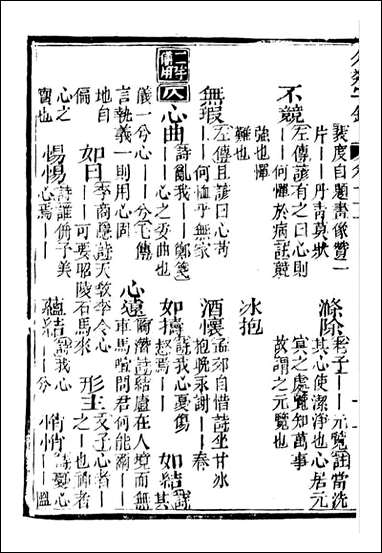 裴度自題畫像贊一
片｜｜丹青莫狀
滌除 老子｜｜元覽註當洗
其心使潔淨也心居元
冥之處覽知萬事
故謂之元覽也
不競 左傳諺有之曰心則
｜｜何憚於病註競
強也憚
難也
冰抱
無瑕 左傳且諺曰心苟
｜｜何恤乎無家
酒懷 孟郊自惜詩坐甘冰
抱晚永謝｜｜春
二字備用
仄 心曲 詩亂我｜｜鄭箋
｜｜心之委曲也
如擣 詩我心憂傷
惄焉｜｜
如結 詩其
儀一兮心｜｜兮傳
言執義一則用心固
心遠 陶潛詩結廬在人境而無
車馬喧問君何能爾｜｜
地自
偏
如日 李商隱詩天教李令心
｜｜可要昭陵石馬來
形主 文子心者｜
｜之｜也神者
心之
寶也
惕惕 詩誰侜予美
心焉｜｜
蘊結 詩我心
｜｜兮
悄悄 詩憂心
｜｜慍